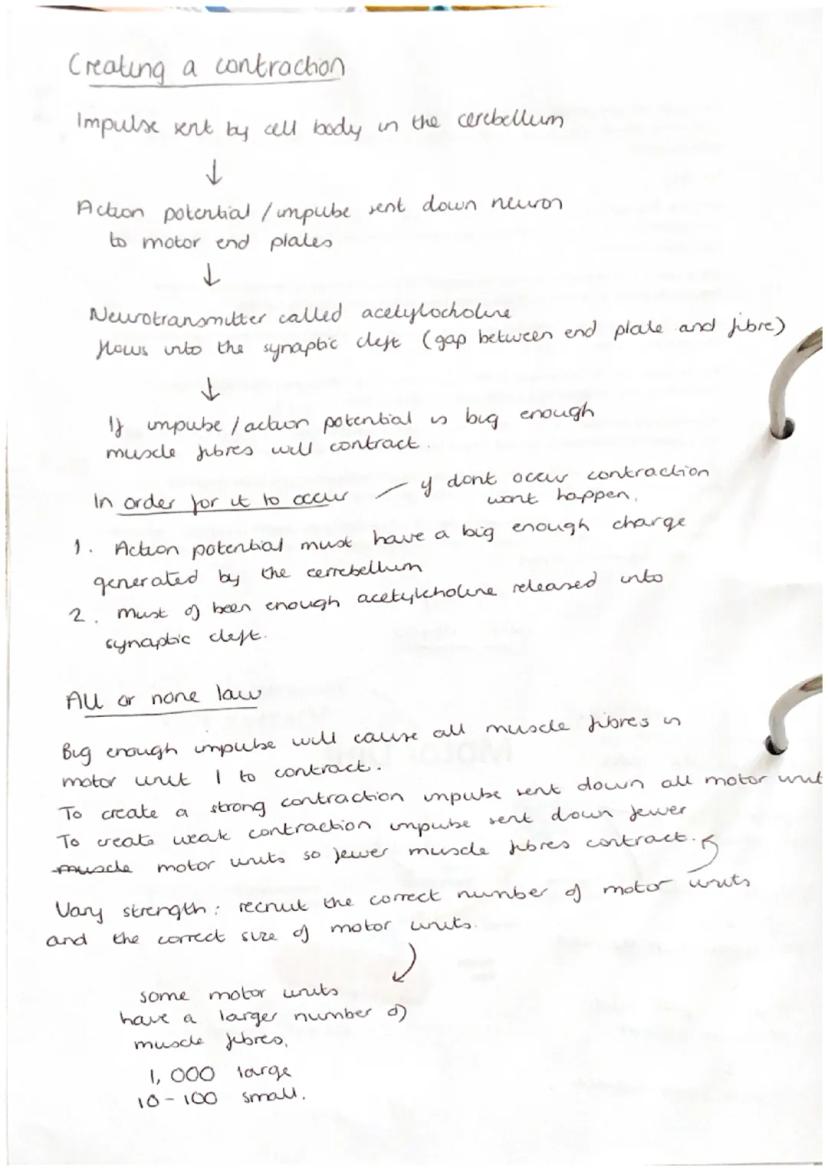 Creating a contraction
Impulse sent by cell body in the cerebellum
↓
Action potential / impulse sent down neuron
to motor end plates
↓
Neurotransmitter called acetylocholine
flows into the synaptic cleft (gap between end plate and fibre)
↓
If impulse / action potential is big enough
muscle fibres will contract.
In order for it to occur — if dont occur contraction
wont happen.
1. Action potential must have a big enough charge
generated by the cerrebellum
2. must of been enough acetylcholine released into
synaptic cleft.
All or none law
Big enough impulse will cause all muscle fibres in
motor unit 1 to contract.
To create a strong contraction impulse sent down all motor unit
To create weak contraction impulse sent down fewer
muscle motor units so fewer muscle fibres contract.
Vary strength: recruit the correct number of motor units
and the correct size of motor units.
some motor units
have a larger number of
muscle fibres,
1,000 large
10-100 small.